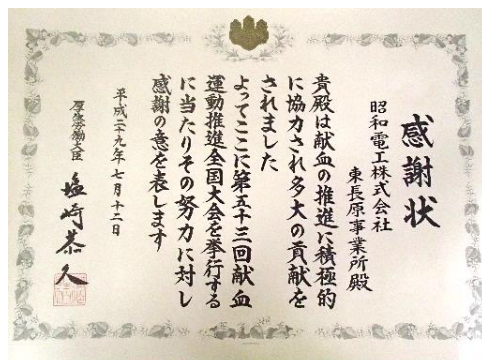 感謝状
昭和電工株式会社
東長原事業所殿
貴殿は献血の推進に積極的
に協力され多大の貢献を
されました
よってここに第五十三回献血
運動推進全国大会を挙行する
に当たりその努力に対し
感謝の意を表します
平成二十九年七月十二日
厚生労働大臣 塩崎恭久